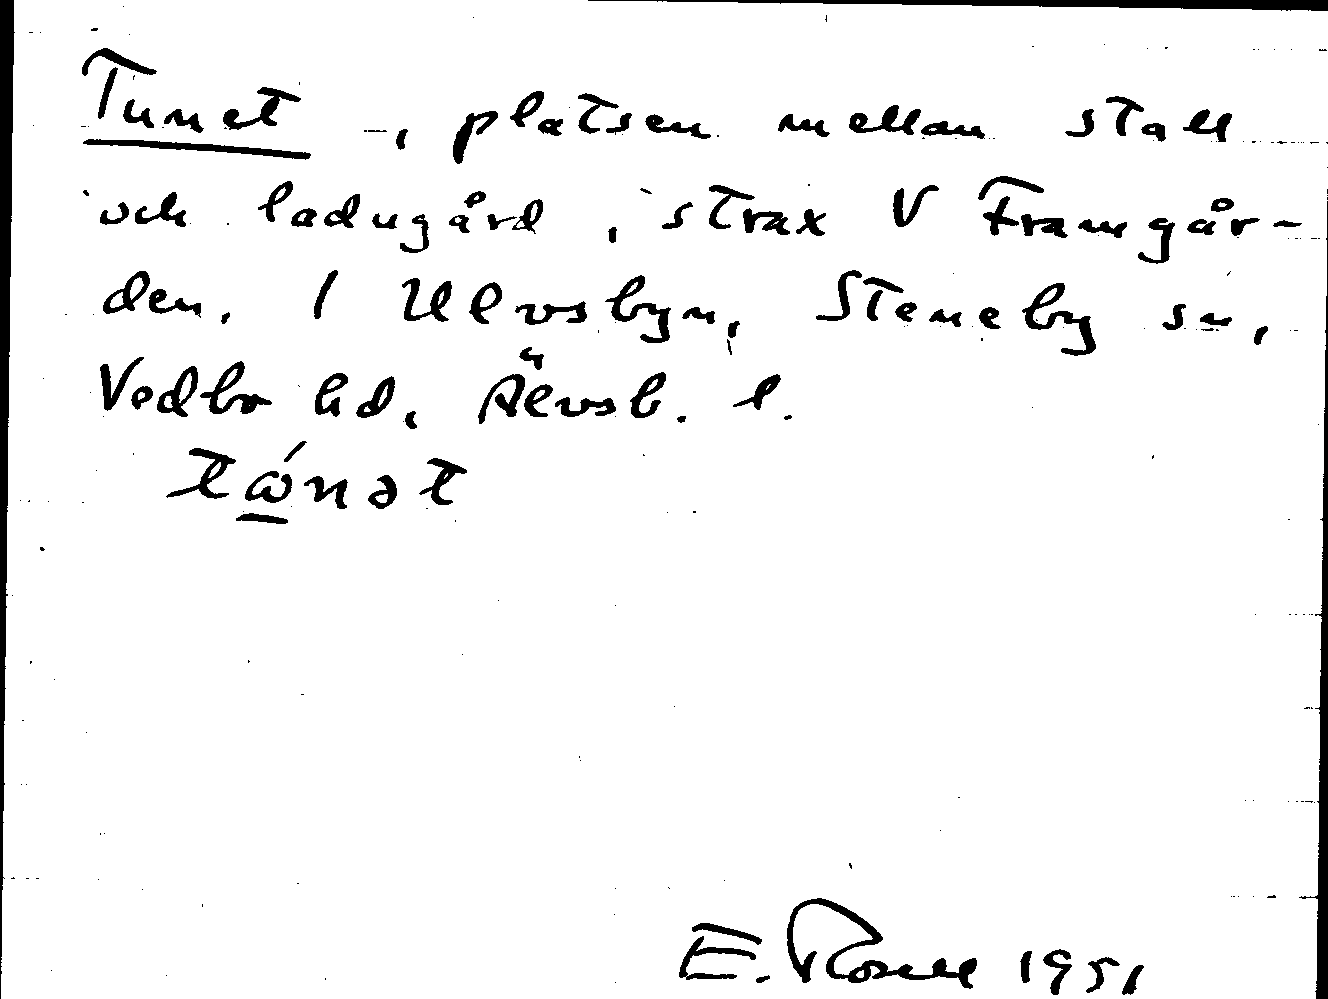 Tunet, platsen mellan stall
och ladugård, strax V Framgår-
den. I Ulvsbyn, Steneby sn,
Vedbo hd, Älvsb. l.
tώnət
E. Rosell 1951